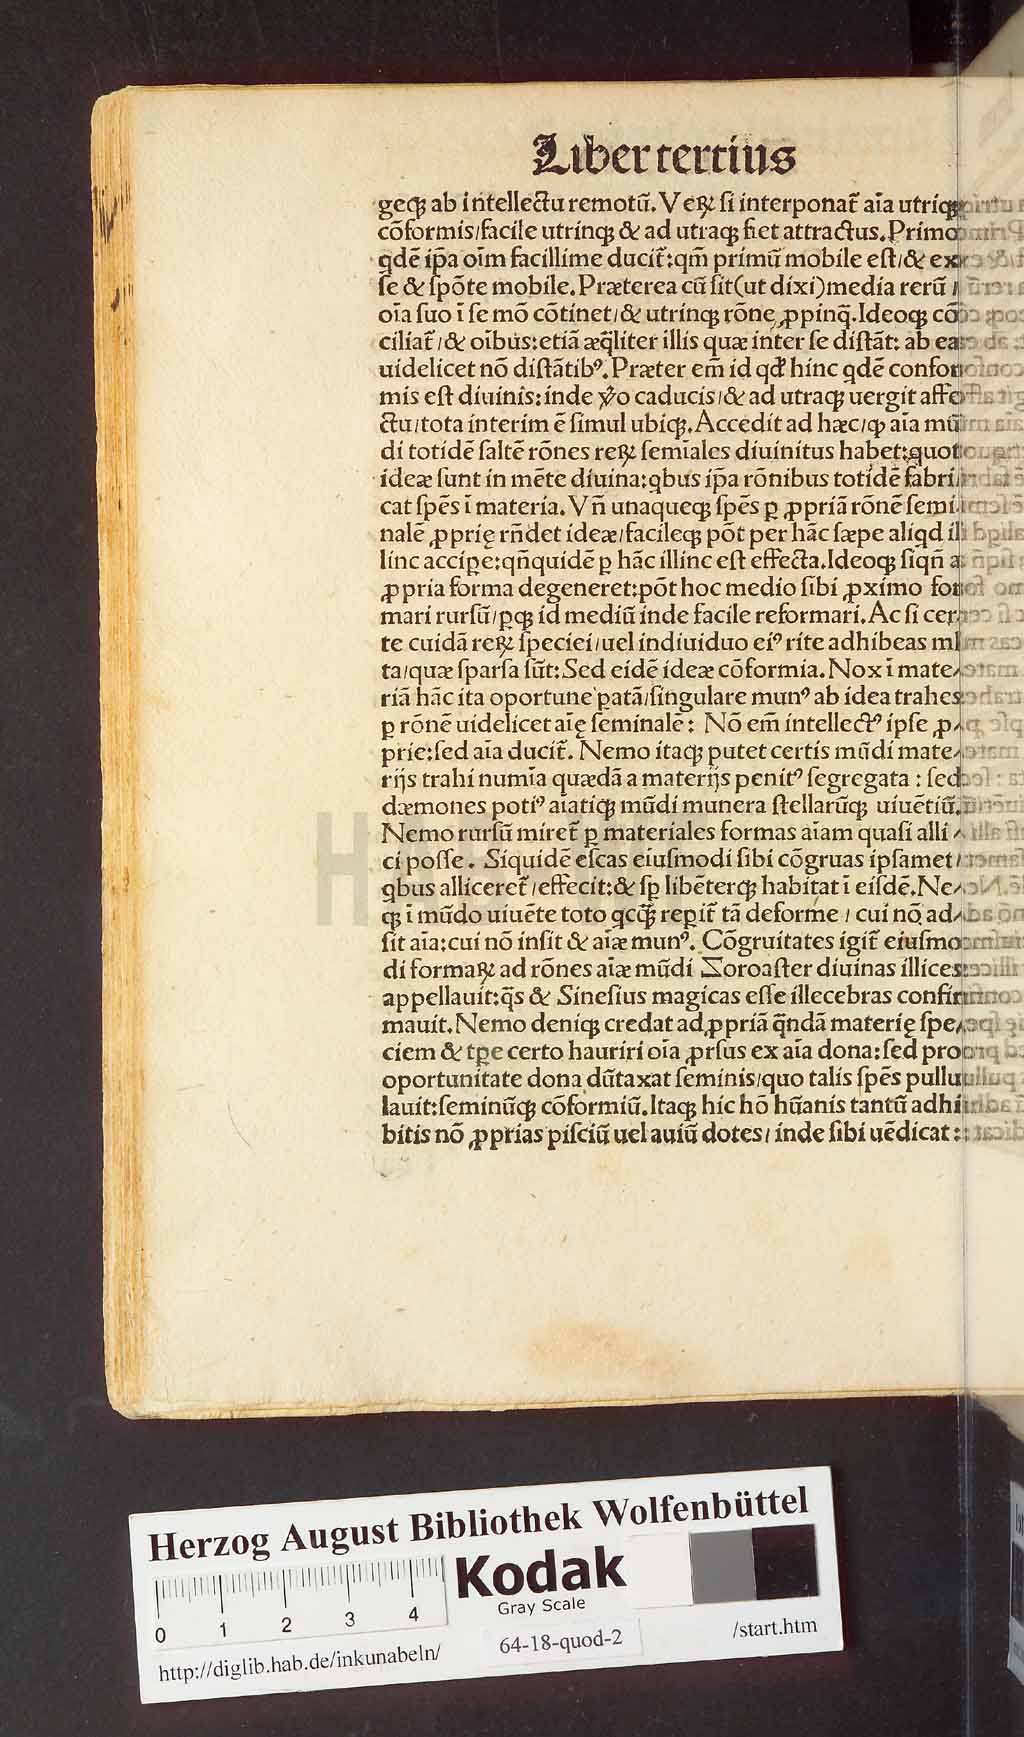 Liber tertius
geqꝫ ab intellectu remotũ. Veꝝ si interponat᷑ aĩa utriqꝫ
cõformis/facile utrinqꝫ & ad utraqꝫ fiet attractus. Primo
qdẽ ip̃a oĩm facillime ducit᷑: qm̃ primũ mobile est/& ex
se & spõte mobile. Præterea cũ sit(ut dixi)media rerũ /
oĩa suo ĩ se mõ cõtinet/& utrinqꝫ rõne ꝓpinq̃. Ideoqꝫ cõ
ciliat᷑/& oĩbus: etiã æq̃liter illis quæ inter se distãt: ab ea
uidelicet nõ distãtibꝰ. Præter em̃ id qđ hinc qdẽ confor
mis est diuinis: inde ỹo caducis/& ad utraqꝫ uergit affe
ctu/tota interim ẽ simul ubiqꝫ. Accedit ad hæc/ꝙ aĩa mũ
di totidẽ saltẽ rõnes reꝝ semĩales diuinitus habet: quot
ideæ sunt in mẽte diuina: qbus ip̃a rõnibus totidẽ fabri
cat sp̃es ĩ materia. Vñ unaqueqꝫ sp̃es ꝑ ꝓpriã rõnẽ semi
nalẽ ꝓprię rñdet ideæ/facileqꝫ põt per hãc sæpe aliqd il
linc accipe: qñquidẽ ꝑ hãc illinc est effecta. Ideoqꝫ siqñ a
ꝓpria forma degeneret: põt hoc medio sibi ꝓximo for
mari rursũ/ꝑqꝫ id mediũ inde facile reformari. Ac si cer
te cuidã reꝝ speciei/uel indiuiduo eiꝰ rite adhibeas ml
ta/quæ sparsa sũt: Sed eidẽ ideæ cõformia. Nox ĩ mate
riã hãc ita oportune ꝑatã/singulare munꝰ ab idea trahes
ꝑ rõnẽ uidelicet aĩę seminalẽ: Nõ em̃ intellectꝰ ipse ꝓ
prie: sed aĩa ducit᷑. Nemo itaqꝫ putet certis mũdi mate
rijs trahi numĩa quædã a materijs penitꝰ segregata : sed
dæmones potiꝰ aĩatiqꝫ mũdi munera stellarũqꝫ uiuẽtiũ.
Nemo rursũ miret᷑ ꝑ materiales formas aĩam quasi alli
ci posse. Siquidẽ escas eiusmodi sibi cõgruas ipsamet/
qbus alliceret᷑/effecit: & sꝑ libẽterqꝫ habitat ĩ eisdẽ. Ne
qꝫ ĩ mũdo uiuẽte toto qcqꝫ̃ reꝑit᷑ tã deforme / cui nõ ad
sit aĩa: cui nõ insit & aĩæ munꝰ. Cõgruitates igit᷑ eiusmo
di formaꝝ ad rõnes aĩæ mũdi Zoroaster diuinas illices
appellauit: q̃s & Sinesius magicas esse illecebras confir
mauit. Nemo deniqꝫ credat ad ꝓpriã q̃ndã materię spe
ciem & tꝑe certo hauriri oĩa ꝓrsus ex aĩa dona: sed pro
oportunitate dona dũtaxat seminis/quo talis sp̃es pullu
lauit: seminũqꝫ cõformiũ. Itaqꝫ hic hõ hũanis tantũ adhi
bitis nõ ꝓprias pisciũ uel auiũ dotes/ inde sibi uẽdicat :
HAB
Herzog August Bibliothek Wolfenbüttel
Kodak
Gray Scale
0 1 2 3 4
64-18-quod-2
/start.htm
http://diglib.hab.de/inkunabeln/